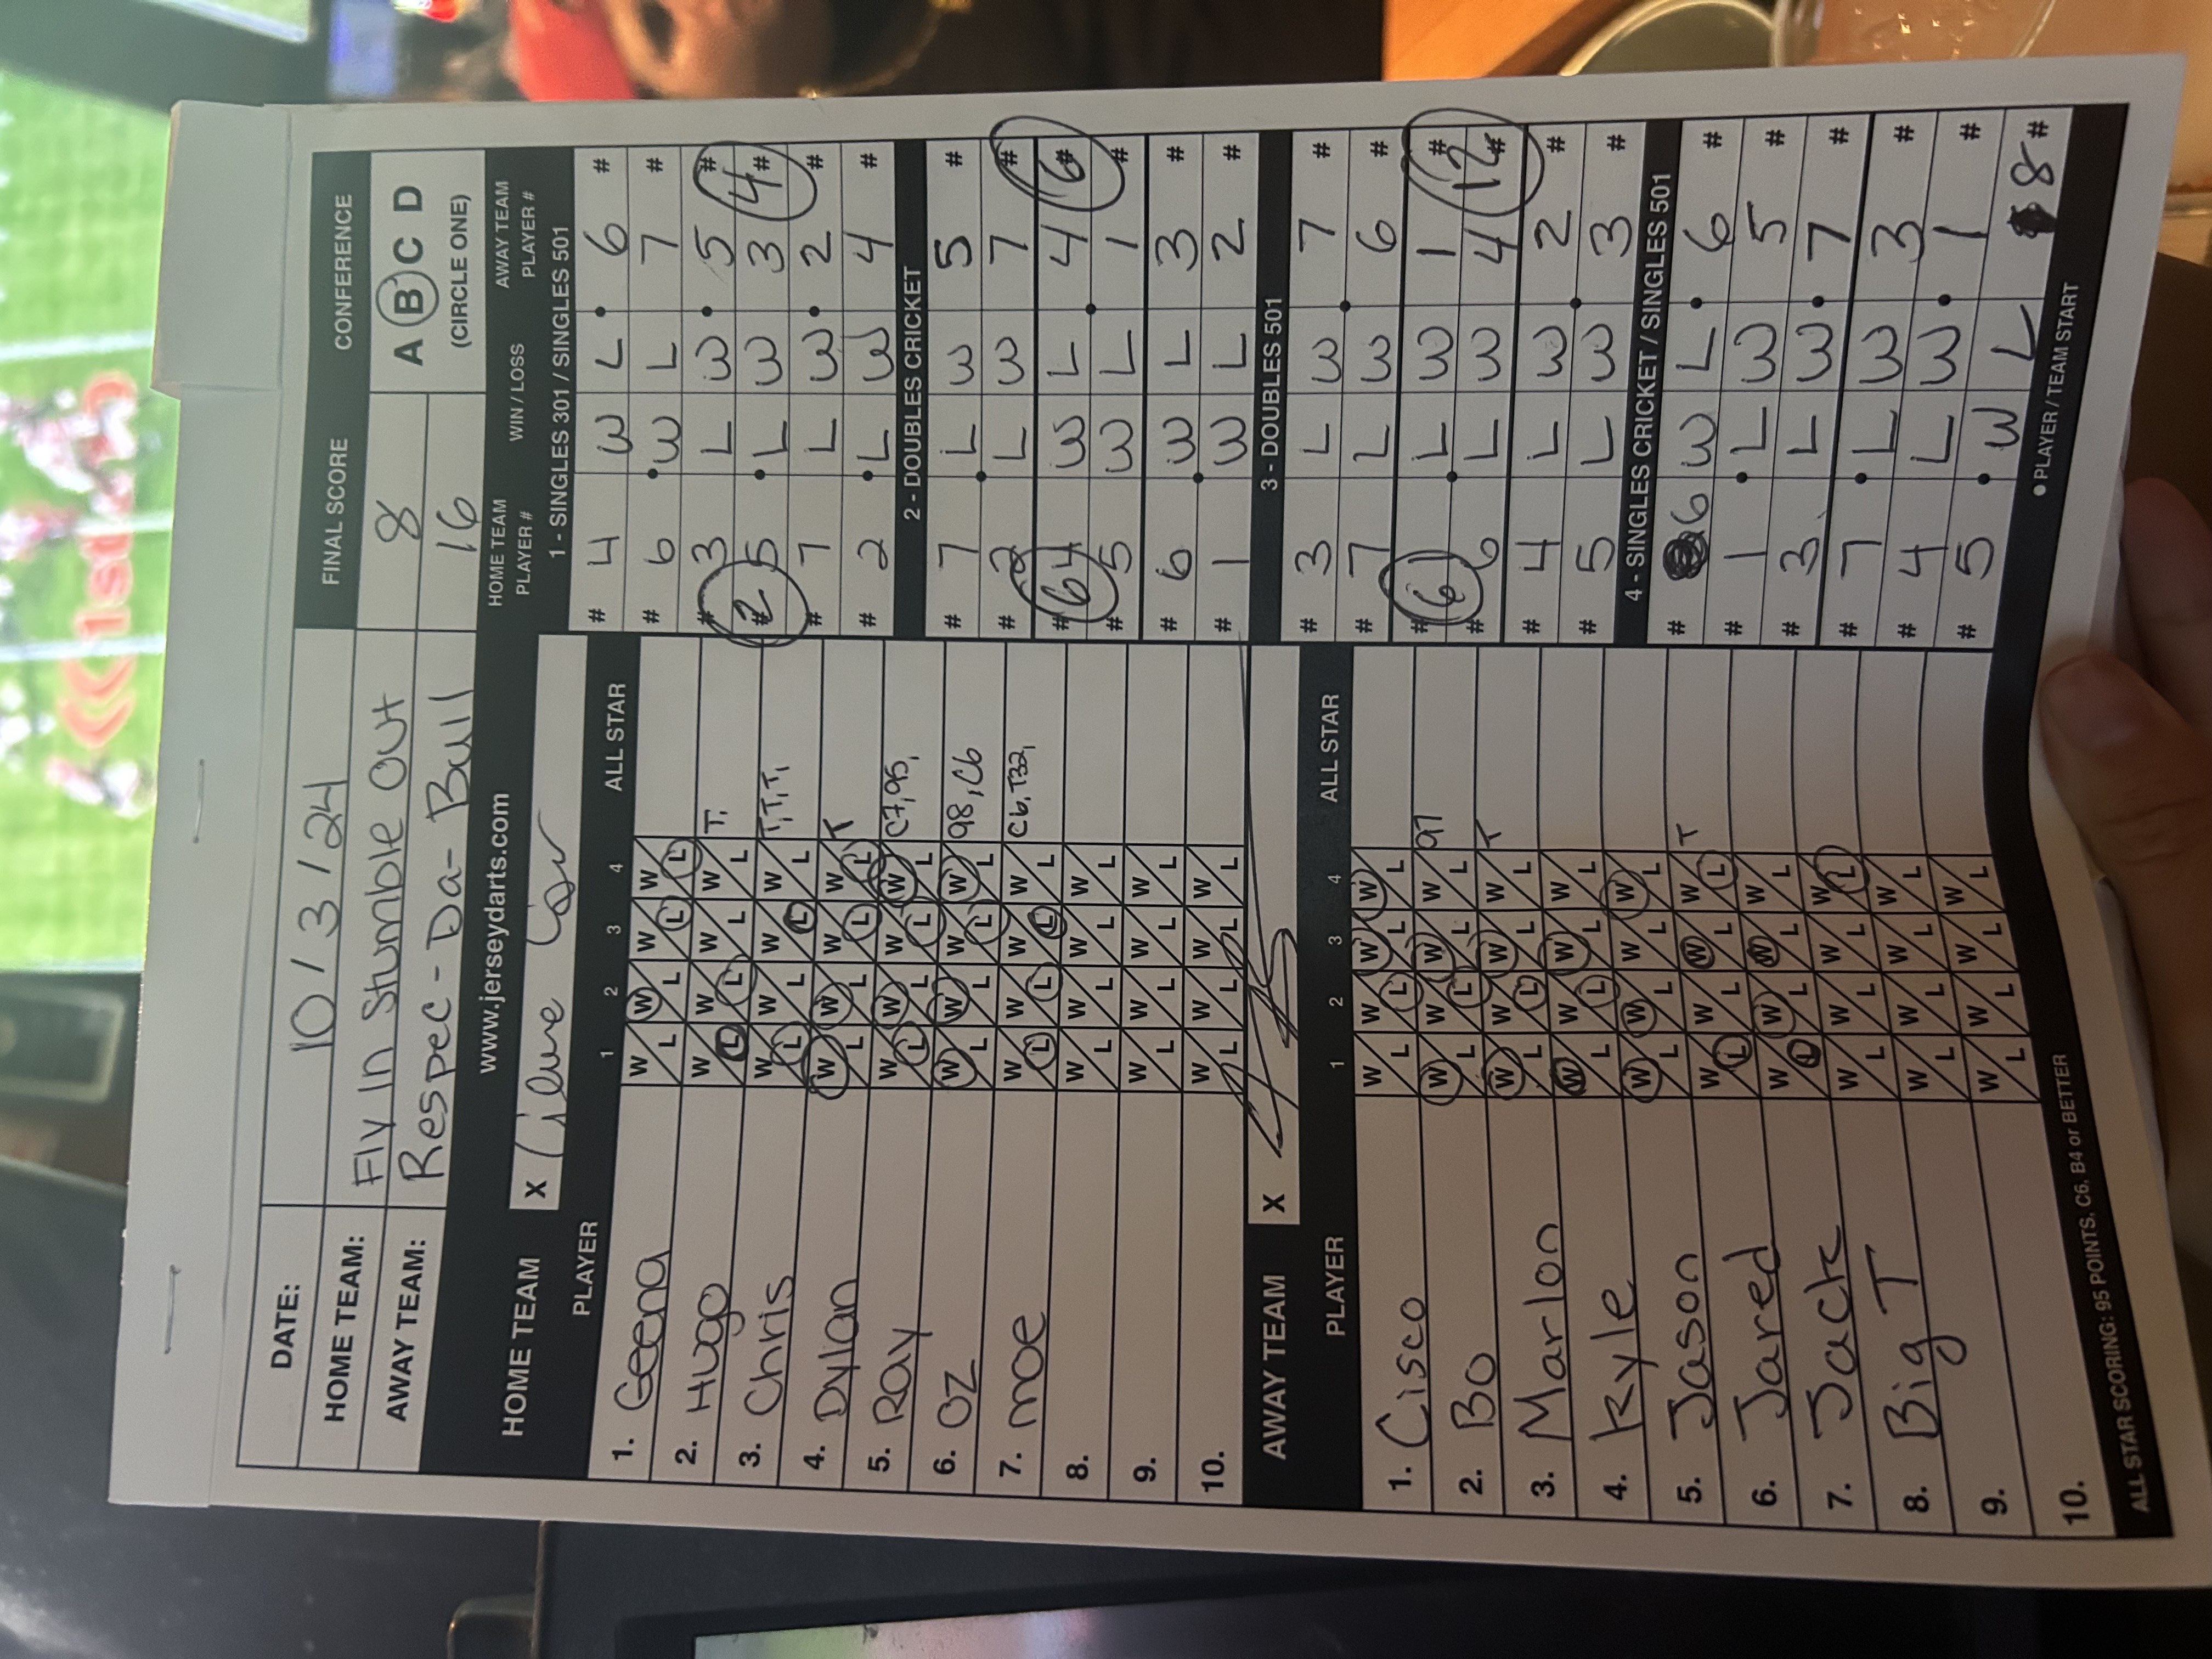 DATE: 10/3/24 FINAL SCORE CONFERENCE
HOME TEAM: Fly In Stumble Out 8 A B C D
AWAY TEAM: Respec-Da-Bull 16 (CIRCLE ONE)
www.jerseydarts.com
HOME TEAM X
PLAYER 1 2 3 4 ALL STAR
1. Geena W L W L W L W L
2. Hugo W L W L W L W L T,
3. Chris W L W L W L W L T,T,T,
4. Dylan W L W L W L W L T
5. Ray W L W L W L W L C7,95,
6. Oz W L W L W L W L 98,C6
7. Moe W L W L W L W L C6,T32,
8. W L W L W L W L
9. W L W L W L W L
10. W L W L W L W L
AWAY TEAM X
PLAYER 1 2 3 4 ALL STAR
1. Cisco W L W L W L W L
2. Bo W L W L W L W L 97
3. Marlon W L W L W L W L T
4. Kyle W L W L W L W L
5. Jason W L W L W L W L
6. Jared W L W L W L W L T
7. Jack W L W L W L W L
8. Big T W L W L W L W L
9. W L W L W L W L
10. W L W L W L W L
ALL STAR SCORING: 95 POINTS, C6, B4 or BETTER
HOME TEAM PLAYER # WIN / LOSS AWAY TEAM PLAYER #
1 - SINGLES 301 / SINGLES 501
# 4 W L 6 #
# 6 W L 7 #
# 3 L W 5 #
# 2 5 L W 3 # 4
# 7 L W 2 #
# 2 L W 4 #
2 - DOUBLES CRICKET
# 7 L W 5 #
# 2 L W 7 #
# 6 4 W L 4 # 6
# 5 W L 1 #
# 6 W L 3 #
# 1 W L 2 #
3 - DOUBLES 501
# 3 L W 7 #
# 7 L W 6 #
# 6 1 L W 1 #
# 6 L W 4 # 12
# 4 L W 2 #
# 5 L W 3 #
4 - SINGLES CRICKET / SINGLES 501
# 6 W L 6 #
# 1 L W 5 #
# 3 L W 7 #
# 7 L W 3 #
# 4 L W 1 #
# 5 W L 8 #
● PLAYER / TEAM START